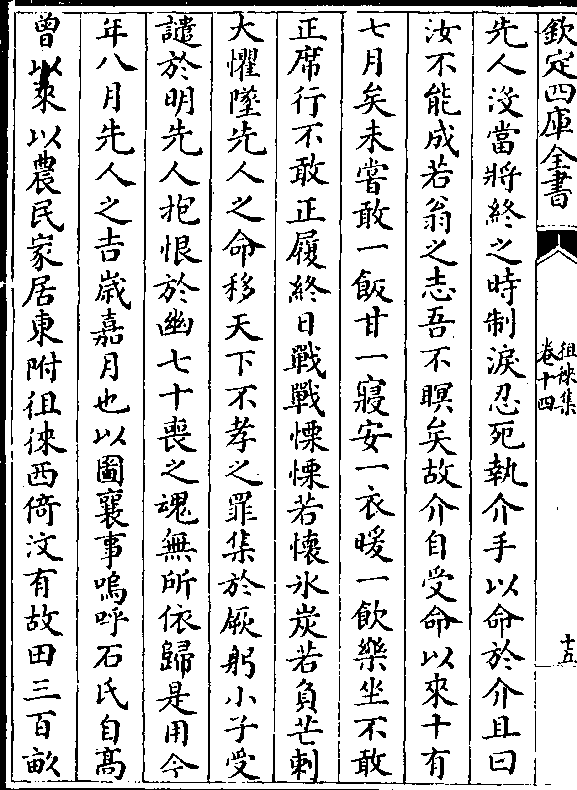 欽定四庫全書
徂徠集
卷十四
十五
先人沒當將終之時制淚忍死執介手以命於介且曰
汝不能成若翁之志吾不瞑矣故介自受命以來十有
七月矣未嘗敢一飯甘一寢安一衣暖一飲樂坐不敢
正席行不敢正履終日戰戰慄慄若懷氷炭若負芒刺
大懼墜先人之命移天下不孝之罪集於厥躬小子受
譴於明先人抱恨於幽七十喪之魂無所依歸是用今
年八月先人之吉歲嘉月也以圖襄事嗚呼石氏自髙
曾以來以農民家居東附徂徠西倚汶有故田三百畝